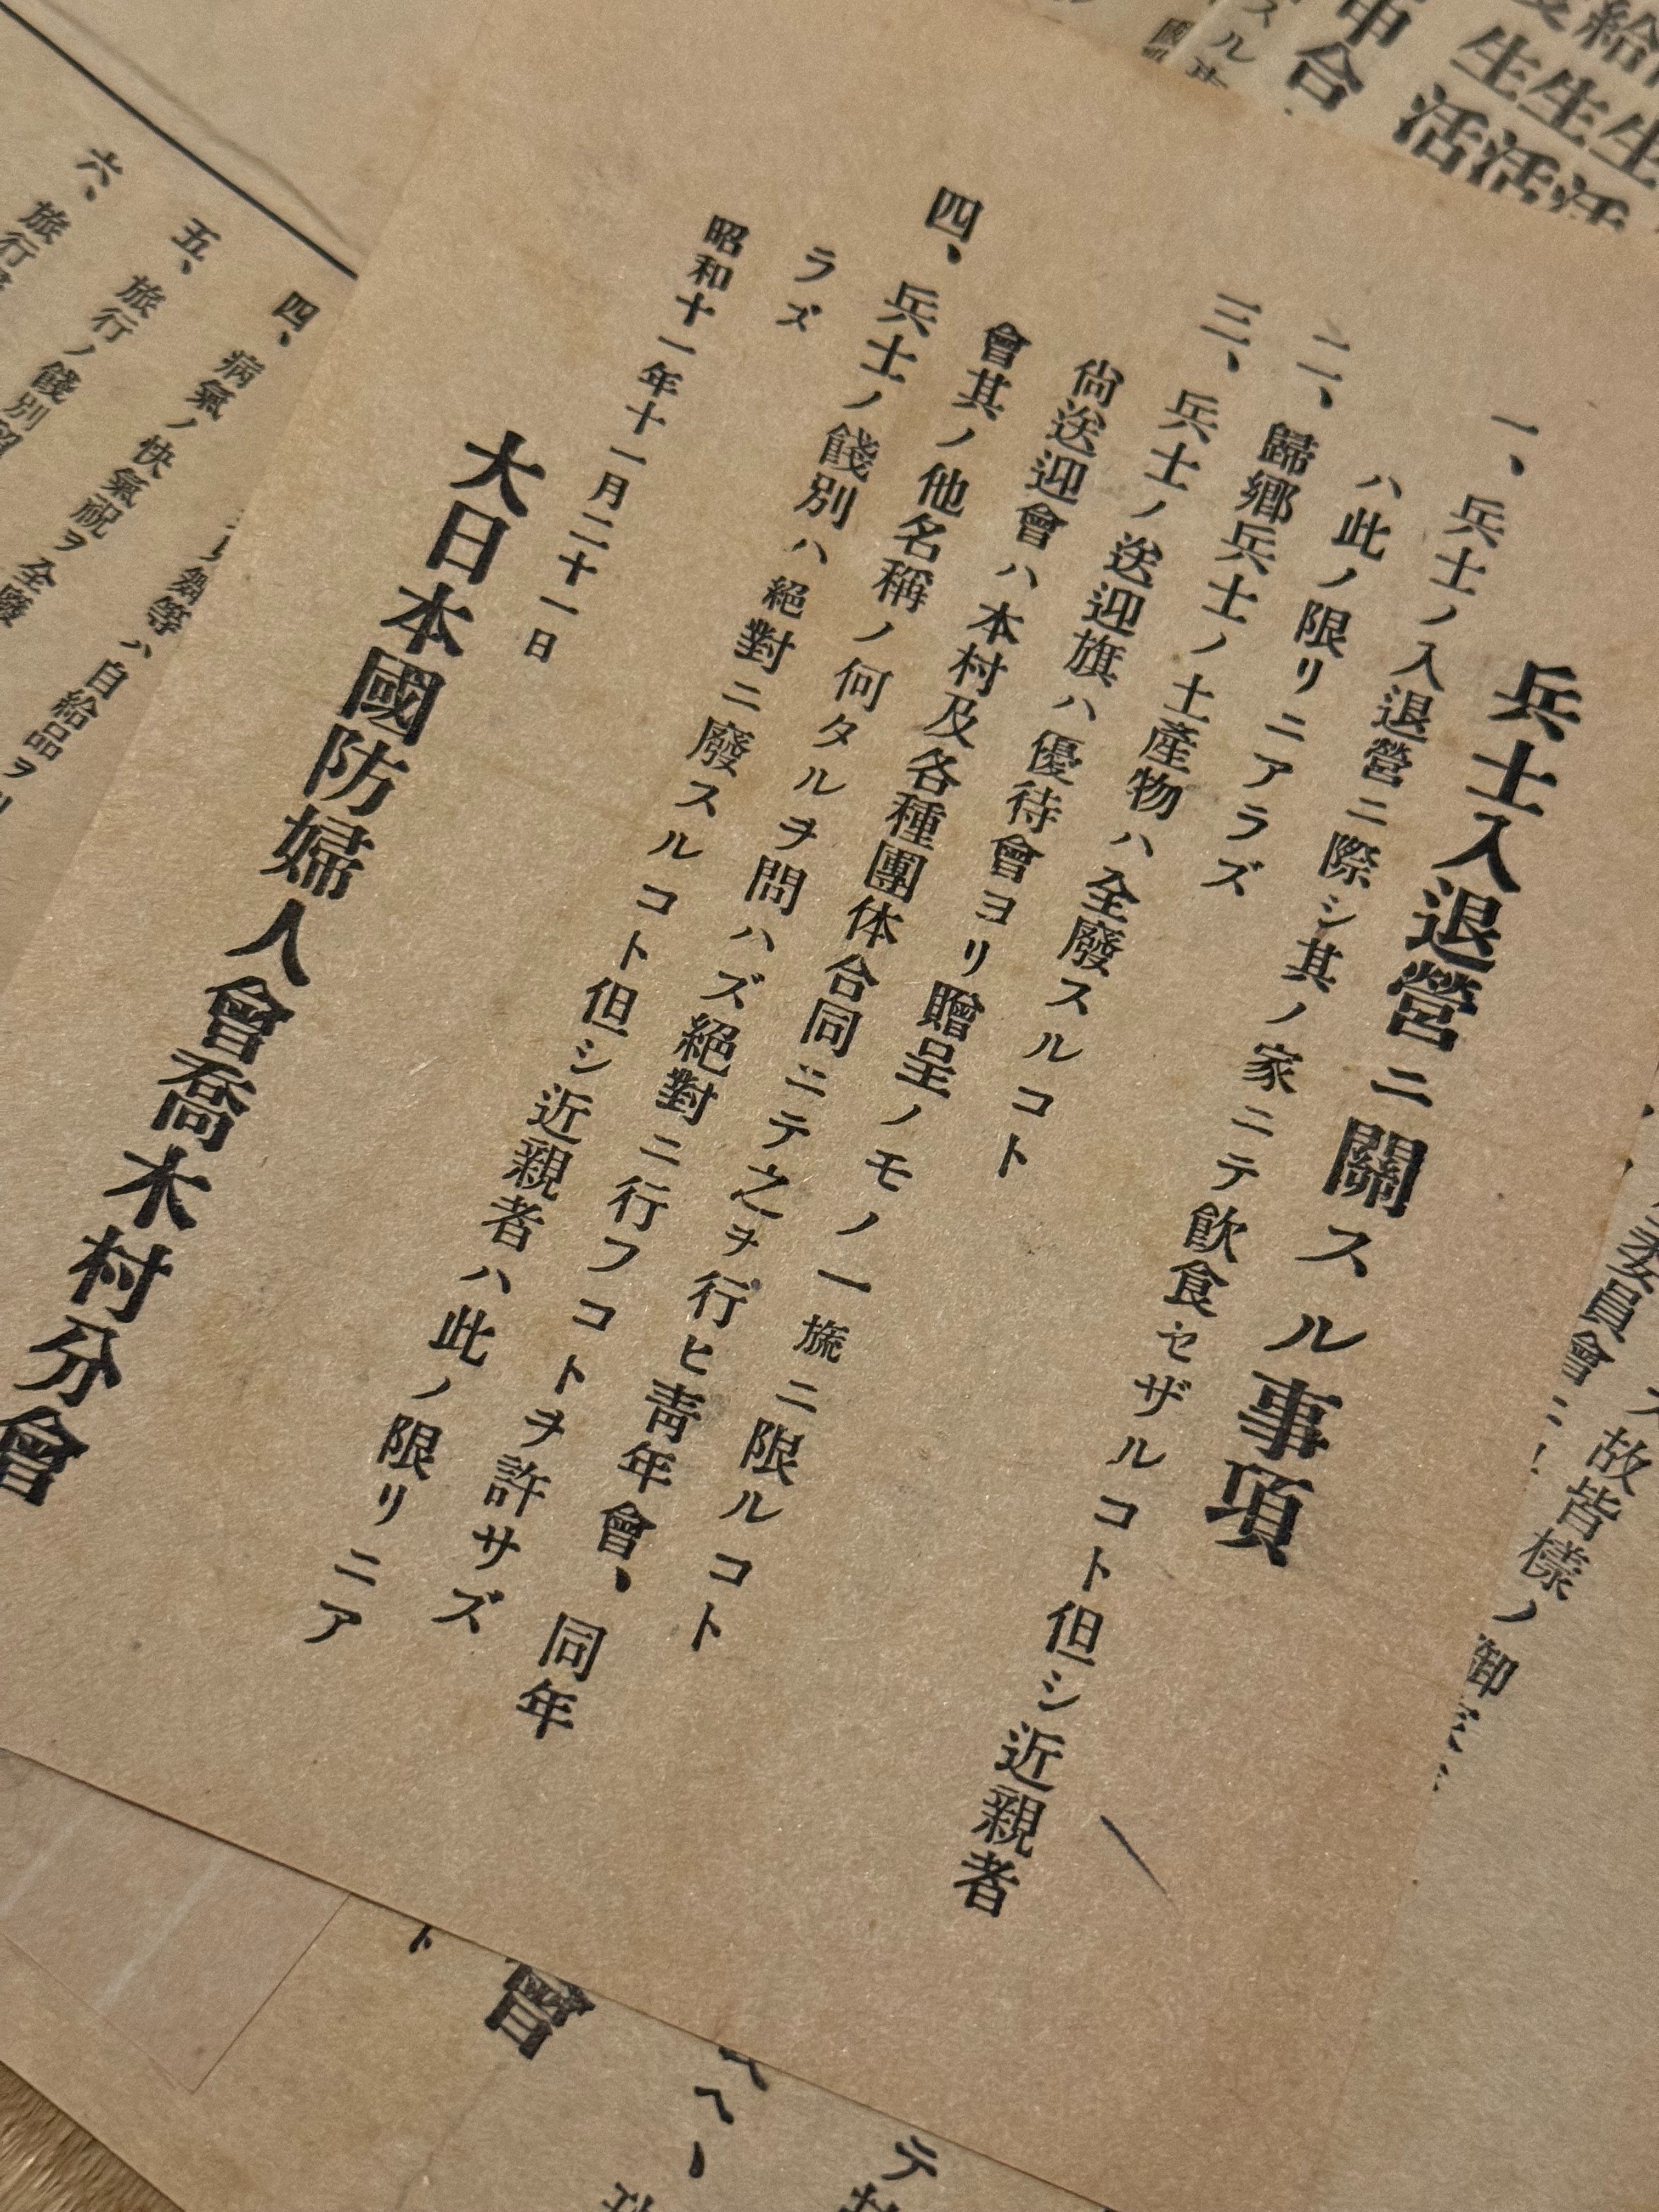 兵士入退營ニ關スル事項
一、兵士ノ入退營ニ際シ其ノ家ニテ飲食セザルコト但シ近親者
ハ此ノ限リニアラズ
二、歸郷兵士ノ土產物ハ全廢スルコト
三、兵士ノ送迎旗ハ優待會ヨリ贈呈ノモノ一旒ニ限ルコト
尙送迎會ハ本村及各種團体合同ニテ之ヲ行ヒ靑年會、同年
會其ノ他名稱ノ何タルヲ問ハズ絕對ニ行フコトヲ許サズ
四、兵士ノ餞別ハ絕對ニ廢スルコト但シ近親者ハ此ノ限リニア
ラズ
昭和十一年十一月二十一日
大日本國防婦人會喬木村分會
四、病氣ノ快氣祝ヲ全廢
五、旅行ノ餞別
六、旅行
舞等ハ自給品ヲ
申合
給
生生生
活活活
スル
委員會ニ
故皆樣ノ御
會
ト
テ